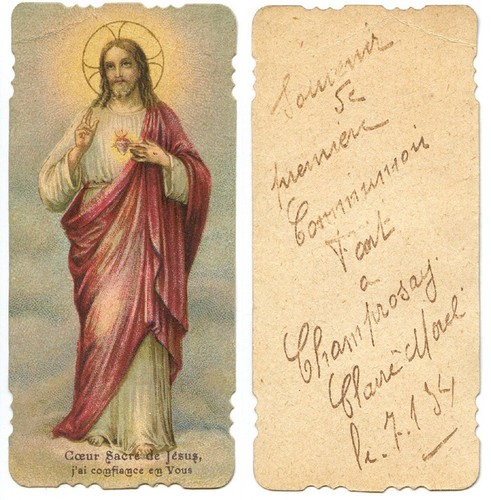 Cœur Sacré de Jésus,
j'ai confiance en Vous
Souvenir
de
première
Communion
Font
a
Champrosay.
Claire Morel
le. 7. 1 34